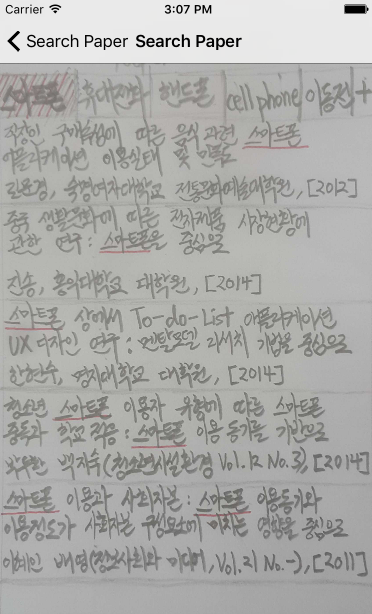 Carrier 3:07 PM
Search Paper Search Paper
스마트폰 휴대전화 핸드폰 cell phone 이동전 +
직장인 구매유형에 따른 음식 관련 스마트폰
어플리케이션 이용실태 및 만족도
숙명여자대학교 전통문화예술대학원, [2012]
중국 생활문화에 따른 전자제품 시장현황에
관한 연구 : 스마트폰을 중심으로
전송, 홍익대학교 대학원, [2014]
스마트폰 상에서 To-do-List 어플리케이션
UX 디자인 연구 : 멘탈모델 리서치 기법을 중심으로
한현수, 명지대학교 대학원, [2014]
청소년 스마트폰 이용자 유형에 따른 스마트폰
중독과 학교 적응 : 스마트폰 이용 동기를 기반으로
백지숙(청소년시설환경 Vol.12 No.3), [2014]
스마트폰 이용과 사회자본 : 스마트폰 이용동기와
이용정도가 사회자본 구성요소에 미치는 영향을 중심으로
배영(정보사회와 미디어, Vol.21 No.-), [2011]